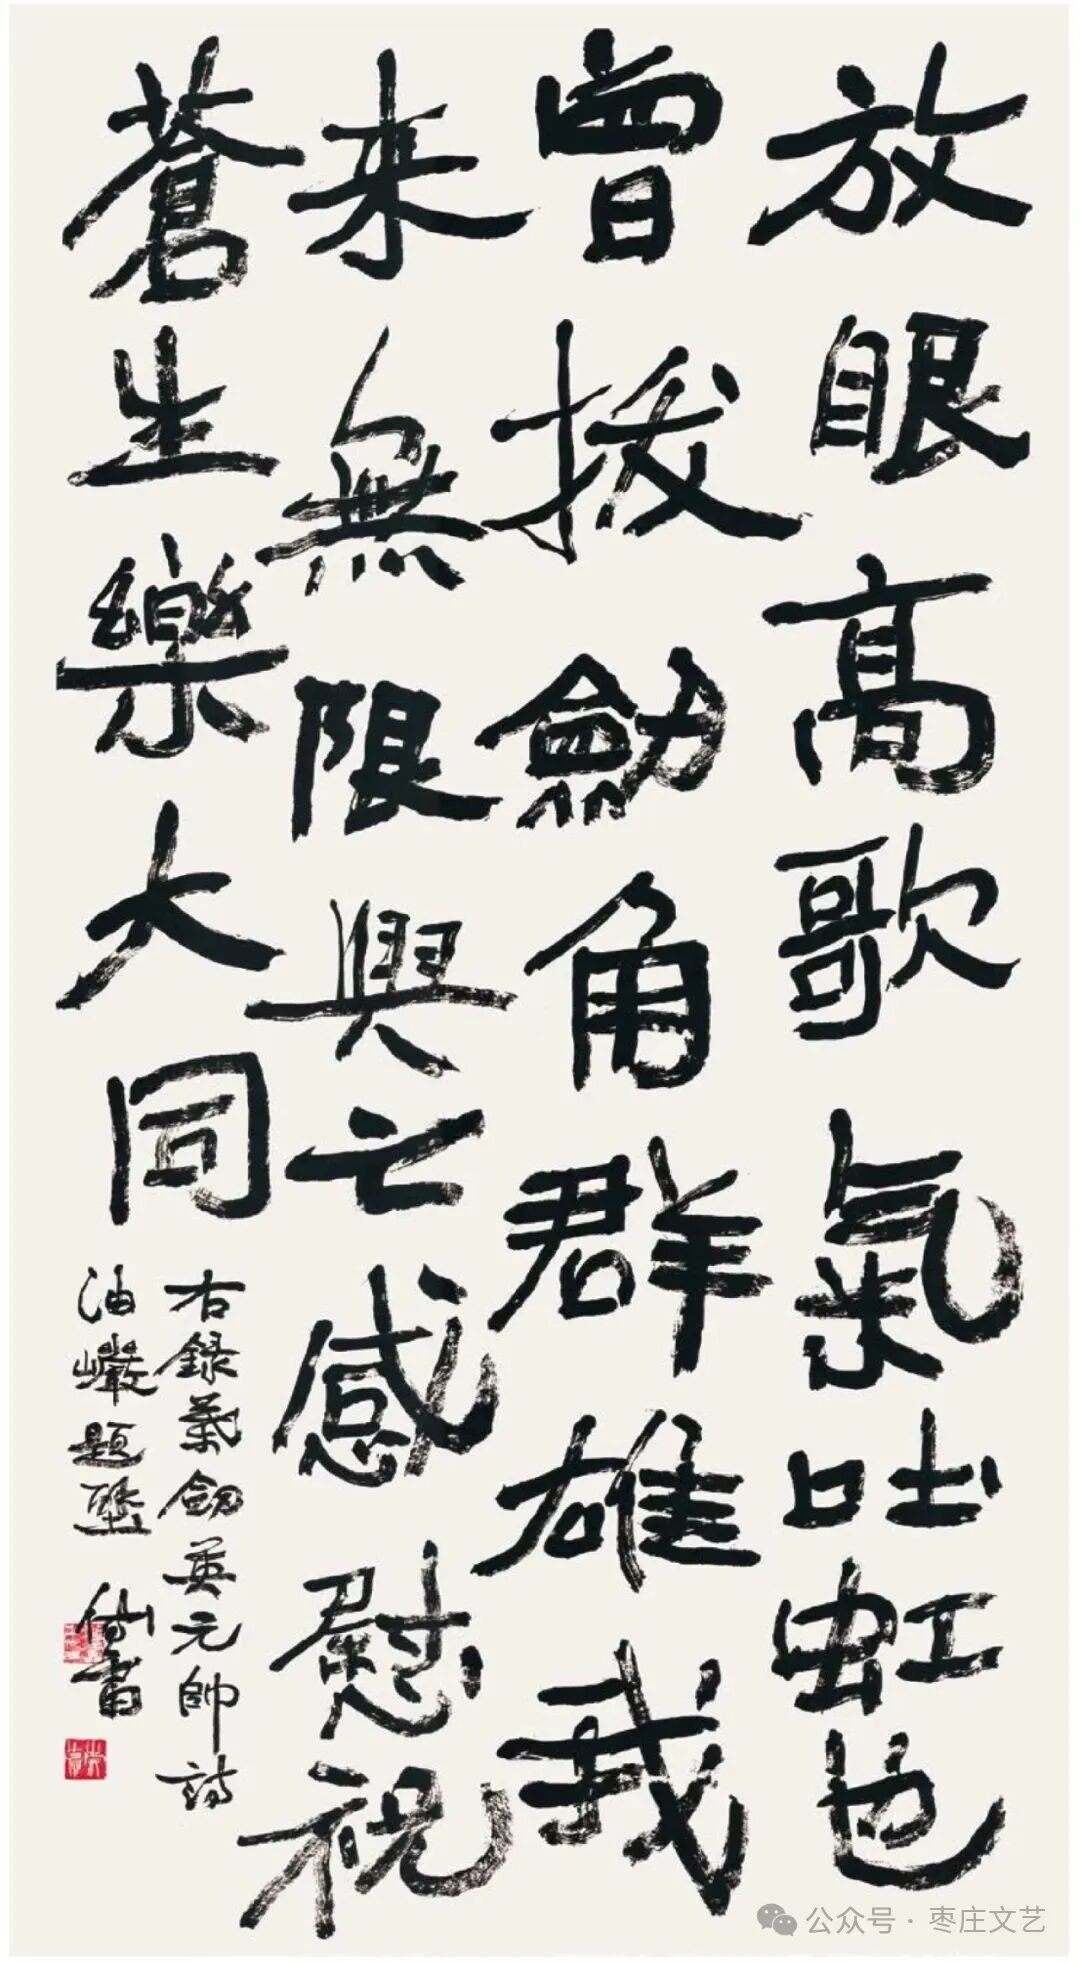 放眼高歌氣吐虹也
曾拔劍角群雄我
来無限興亡感慰祝
蒼生樂大同
右録葉劍英元帥詩
油巖題壁 書
公众号·枣庄文艺